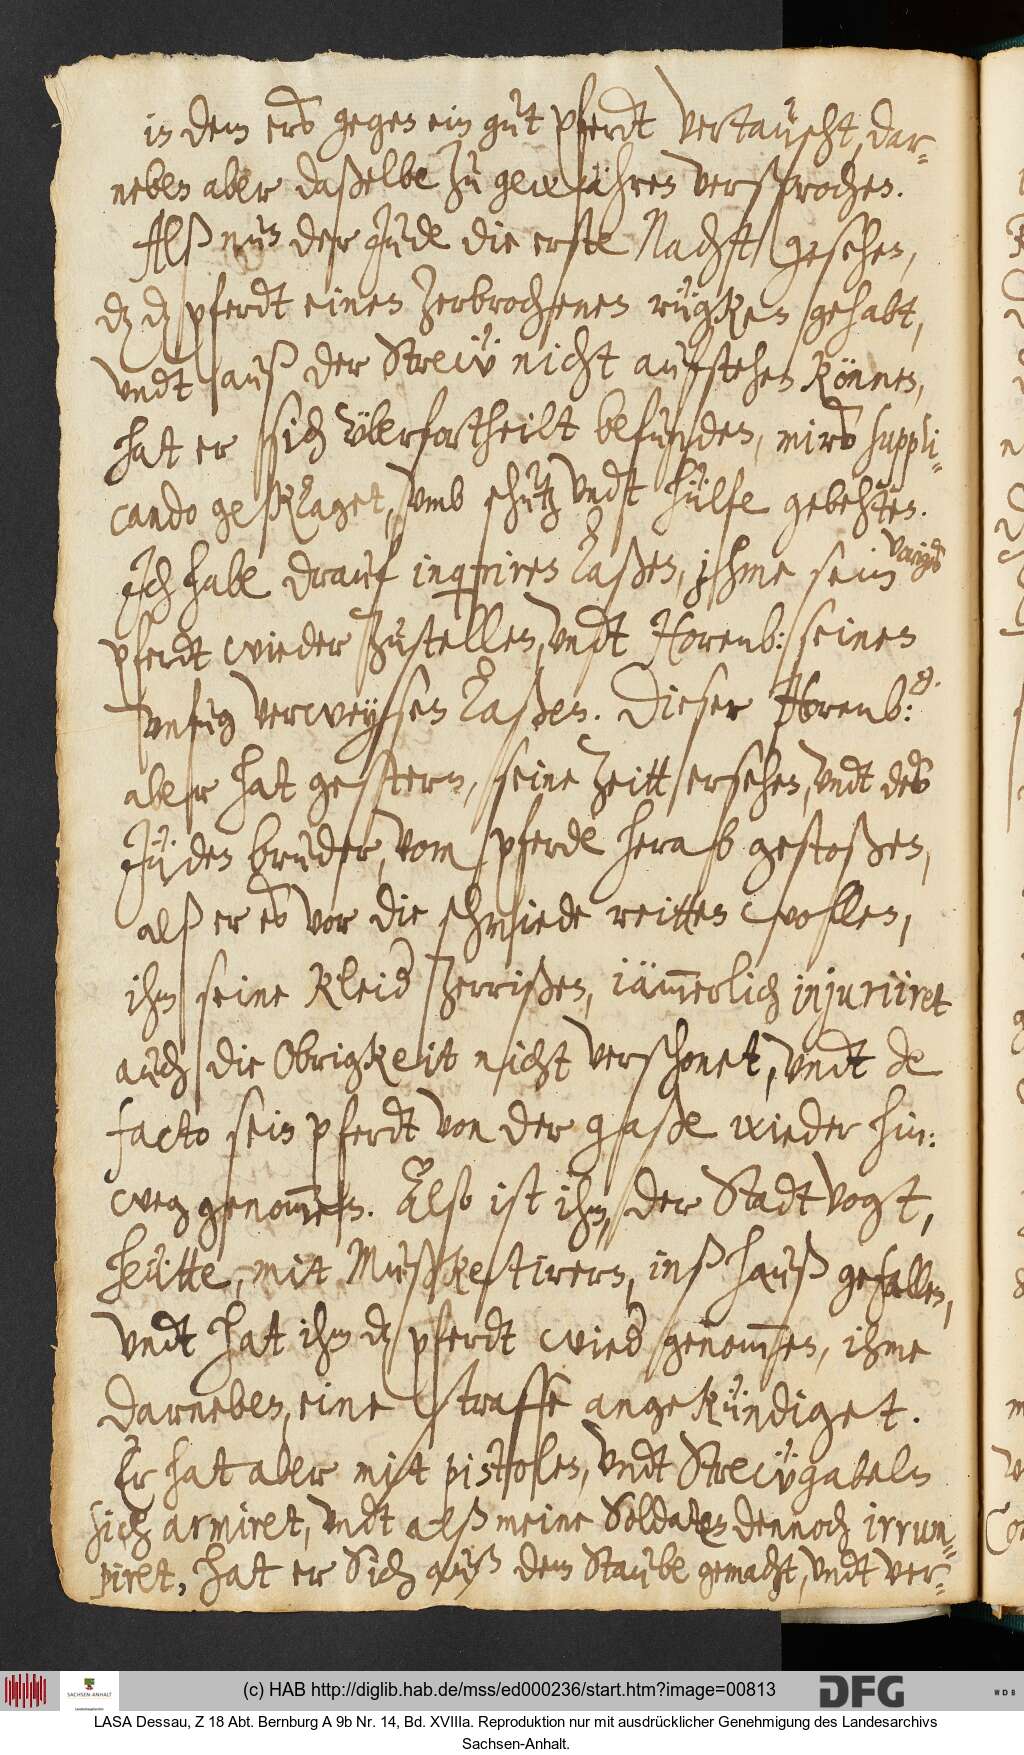 in dem ers gegen ein gut pferdt vertauscht, dar-
neben aber daßelbe zu gewähren versprochen.
Alß nun der Jude die erste Nacht gesehen,
dz dz pferdt einen zerbrochenen rügken gehabt,
vndt auß der Streẅ nicht aufstehen können,
hat er sich vberfortheilt befunden, mirs suppli-
cando geklaget, vmb schutz vndt hülfe gebehten.
Ich habe drauf inquiriren laßen, ihme sein voriges
pferdt wieder zustellen, vndt Horenb: seinen
vnfug verweysen laßen. Dieser Horenb:g.
aber hat gestern, seine zeitt ersehen, vndt des
Jüden bruder, vom pferde herab gestoßen,
alß er es vor die schmiede reitten wollen,
ihm seine kleid zerrißen, iäm̄erlich injuriiret
auch die Obrigkeit nicht verschonet, vndt de
facto sein pferdt von der gaße wieder hin:
weg genom̄en. Also ist ihm, der Stadtvogt,
heütte, mit Mußketirern, inß hauß gefallen,
vndt hat ihm dz pferdt wied genom̄en, ihme
darneben, eine straffe angekündiget.
Er hat aber mit pistolen, vndt Streẅgabeln
sich armiret, vndt alß meine Soldaten dennoch irrum-
piret, hat er Sich auß dem Staube gemacht, vndt ver-
(c) HAB http://diglib.hab.de/mss/ed000236/start.htm?image=00813
DFG
WDB
SACHSEN-ANHALT
LASA Dessau, Z 18 Abt. Bernburg A 9b Nr. 14, Bd. XVIIIa. Reproduktion nur mit ausdrücklicher Genehmigung des Landesarchivs
Sachsen-Anhalt.